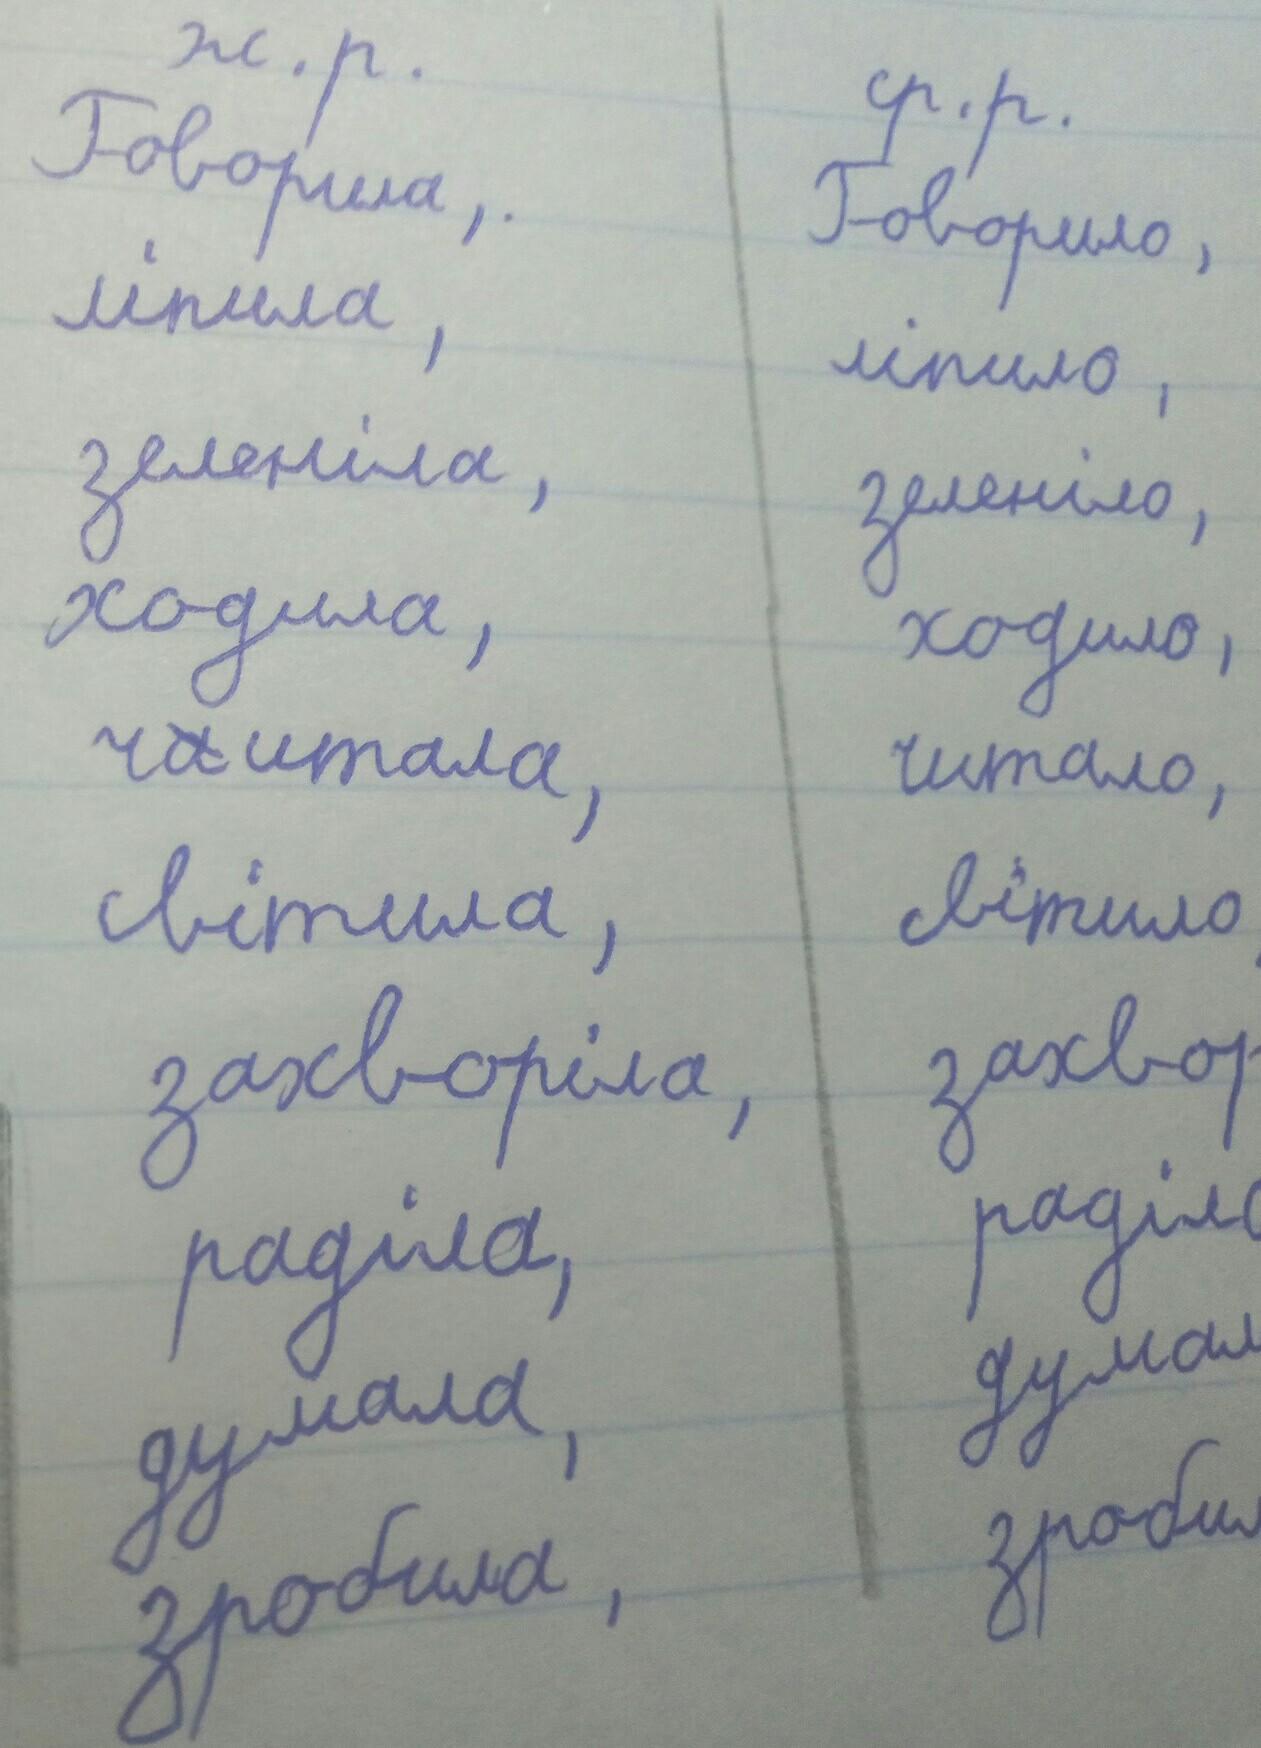 ж.р.
Говорила,.
ліпила,
зеленіла,
ходила,
читала,
світила,
захворіла,
раділа,
думала,
зробила,
ср.р.
Говорило,
ліпило,
зеленіло,
ходило,
читало,
світило,
захвор
раділо
думал
зробил